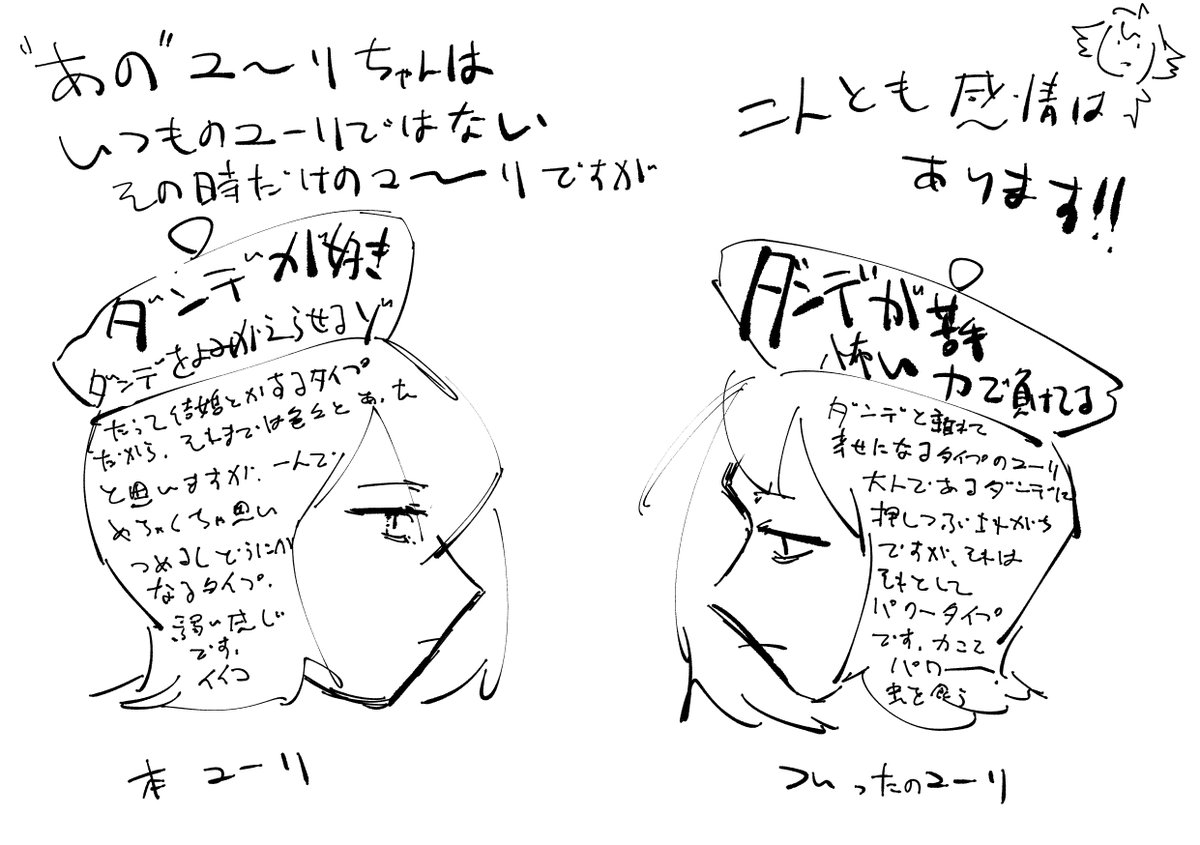 "あの"ユ〜リちゃんは
いつものユーリではない
その時だけのユ〜リですが
二人とも感情は
あります!!
ダンデが好き
ダンデをよみがえらせるゾ
だって結婚とかするタイプ
だから、それまでは色々とあった
と思いますが、一人で
めちゃくちゃ思い
つめるしどうにか
なるタイプ.
弱い感じ
です.
イイコ
本 ユーリ
ダンデが苦手
怖い 力で負けてる
ダンデと離れて
幸せになるタイプのユーリ
大人であるダンデに
押しつぶされがち
ですが、それは
それとして
パワータイプ
です. カこて
パワー
虫を食う
ついったのユーリ